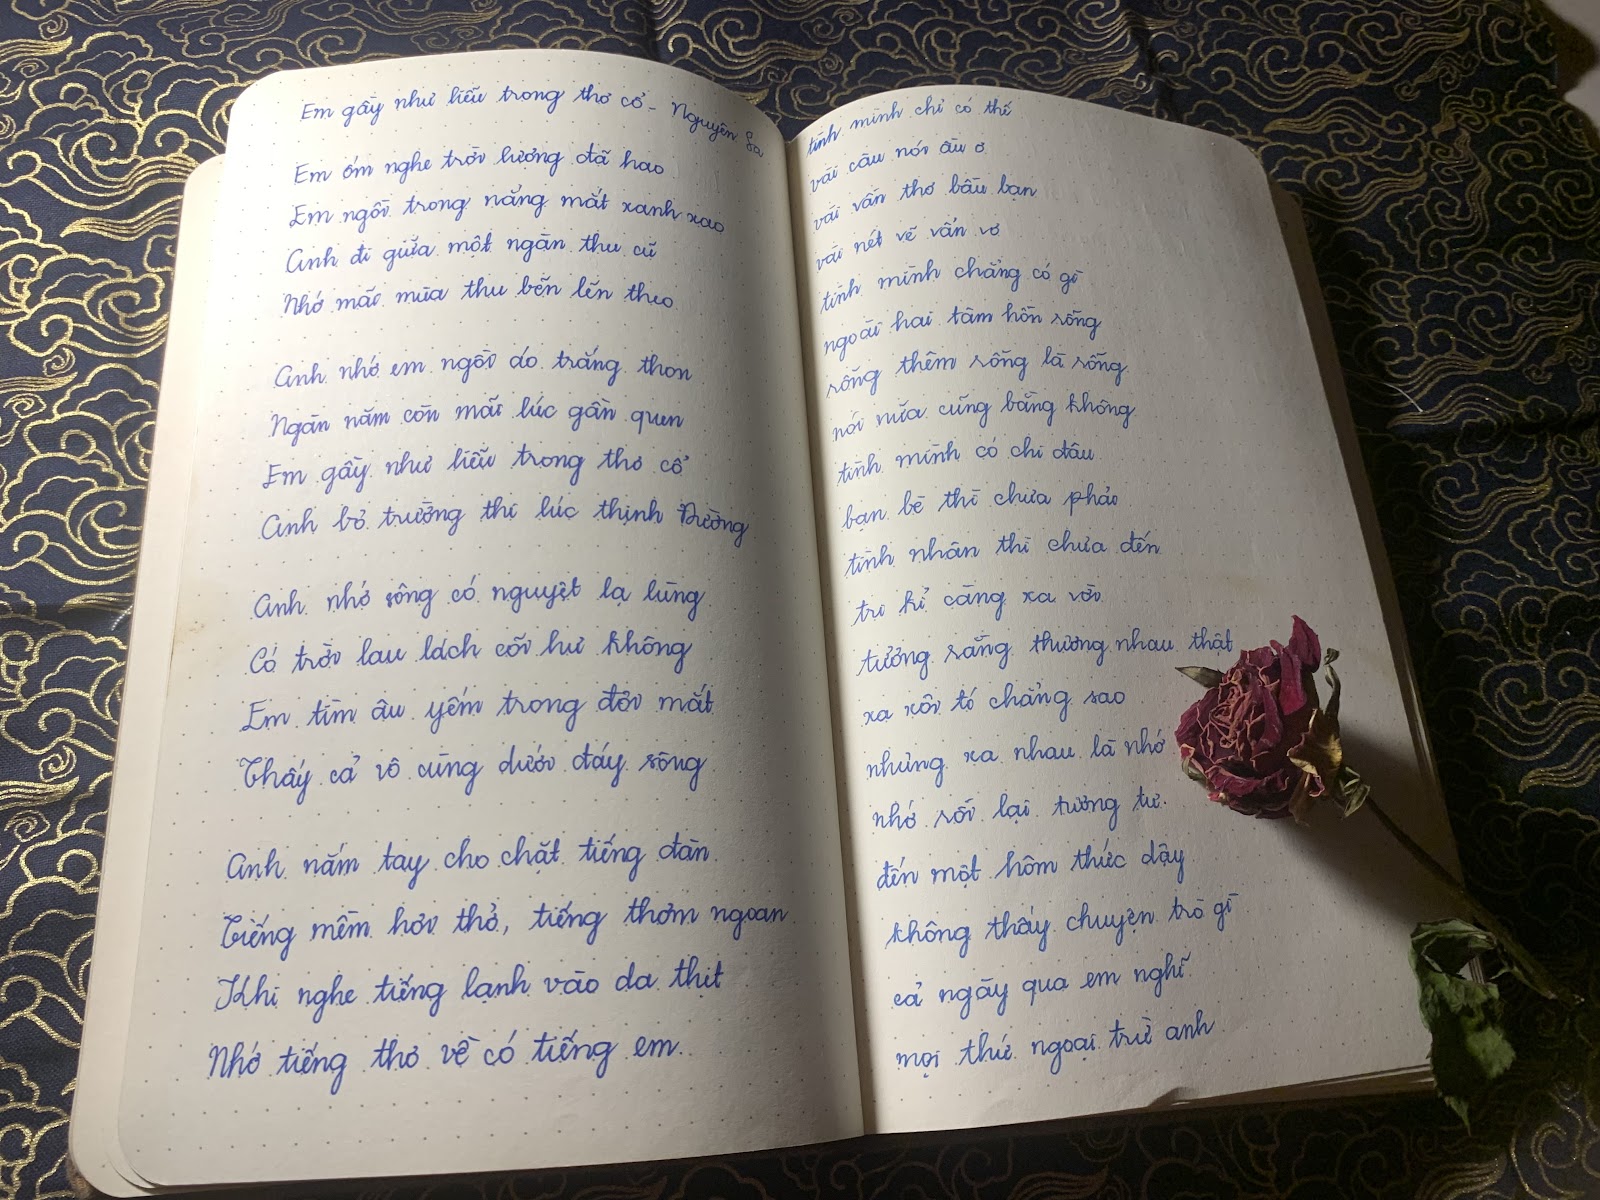 Em gầy như liễu trong thơ cổ - Nguyên Sa
Em ốm nghe trời lượng đã hao
Em ngồi trong nắng mắt xanh xao
Anh đi giữa một ngàn thu cũ
Nhớ mãi mùa thu bẽn lẽn theo
Anh nhớ em ngồi áo trắng thon
Ngàn năm còn mãi lúc gần quen
Em gầy như liễu trong thơ cổ
Anh bỏ trường thi lúc thịnh Đường
Anh nhớ sông có nguyệt lạ lùng
Có trời lau lách cõi hư không
Em tìm âu yếm trong đôi mắt
Thấy cả vô cùng dưới đáy sông
Anh nắm tay cho chặt tiếng đàn
Tiếng mềm hơi thở, tiếng thơm ngoan
Khi nghe tiếng lạnh vào da thịt
Nhớ tiếng thơ về có tiếng em.
tình mình chỉ có thế
vài câu nói ầu ơ
vài vần thơ bầu bạn
vài nét vẽ vẩn vơ
tình mình chẳng có gì
ngoài hai tâm hồn rỗng
rỗng thêm rỗng là rỗng
nói nữa cũng bằng không
tình mình có chi đâu
bạn bè thì chưa phải
tình nhân thì chưa đến
tri kỉ càng xa vời
tưởng rằng thương nhau thật
xa xôi tí chẳng sao
nhưng xa nhau là nhớ
nhớ rồi lại tương tư.
đến một hôm thức dậy
không thấy chuyện trò gì
cả ngày qua em nghĩ
mọi thứ ngoại trừ anh